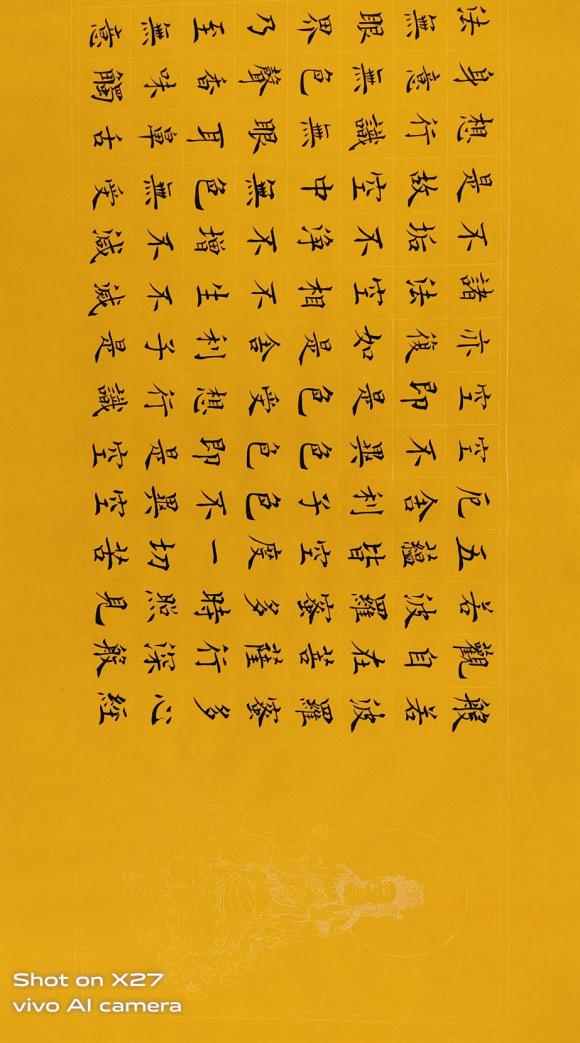 般若波羅蜜多心經
觀自在菩薩行深般
若波羅蜜多時照見
五蘊皆空度一切苦
厄舍利子色不異空
空不異色色即是空
空即是色受想行識
亦復如是舍利子是
諸法空相不生不滅
不垢不淨不增不減
是故空中無色無受
想行識無眼耳鼻舌
身意無色聲香味觸
法無眼界乃至無意
Shot on X27
vivo AI camera